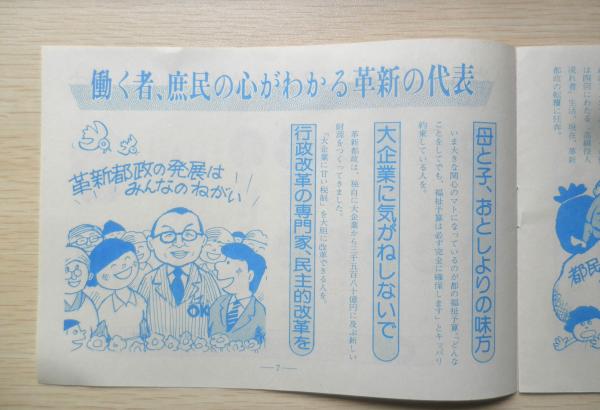 働く者、庶民の心がわかる革新の代表
母と子、おとしよりの味方
いま大きな関心のマトになっているのが都の福祉予算。「どんな
ことをしてでも、福祉予算は必ず完全に確保します」とキッパリ
約束している人を。
大企業に気がねしないで
革新都政は、独自に大企業から三千五百八十億円に及ぶ新しい
財源をつくってきました。
「大企業に甘い税制」を大胆に改革できる人を。
行政改革の専門家、民主的改革を
革新都政の発展は
みんなのねがい
OK
—7—
都民